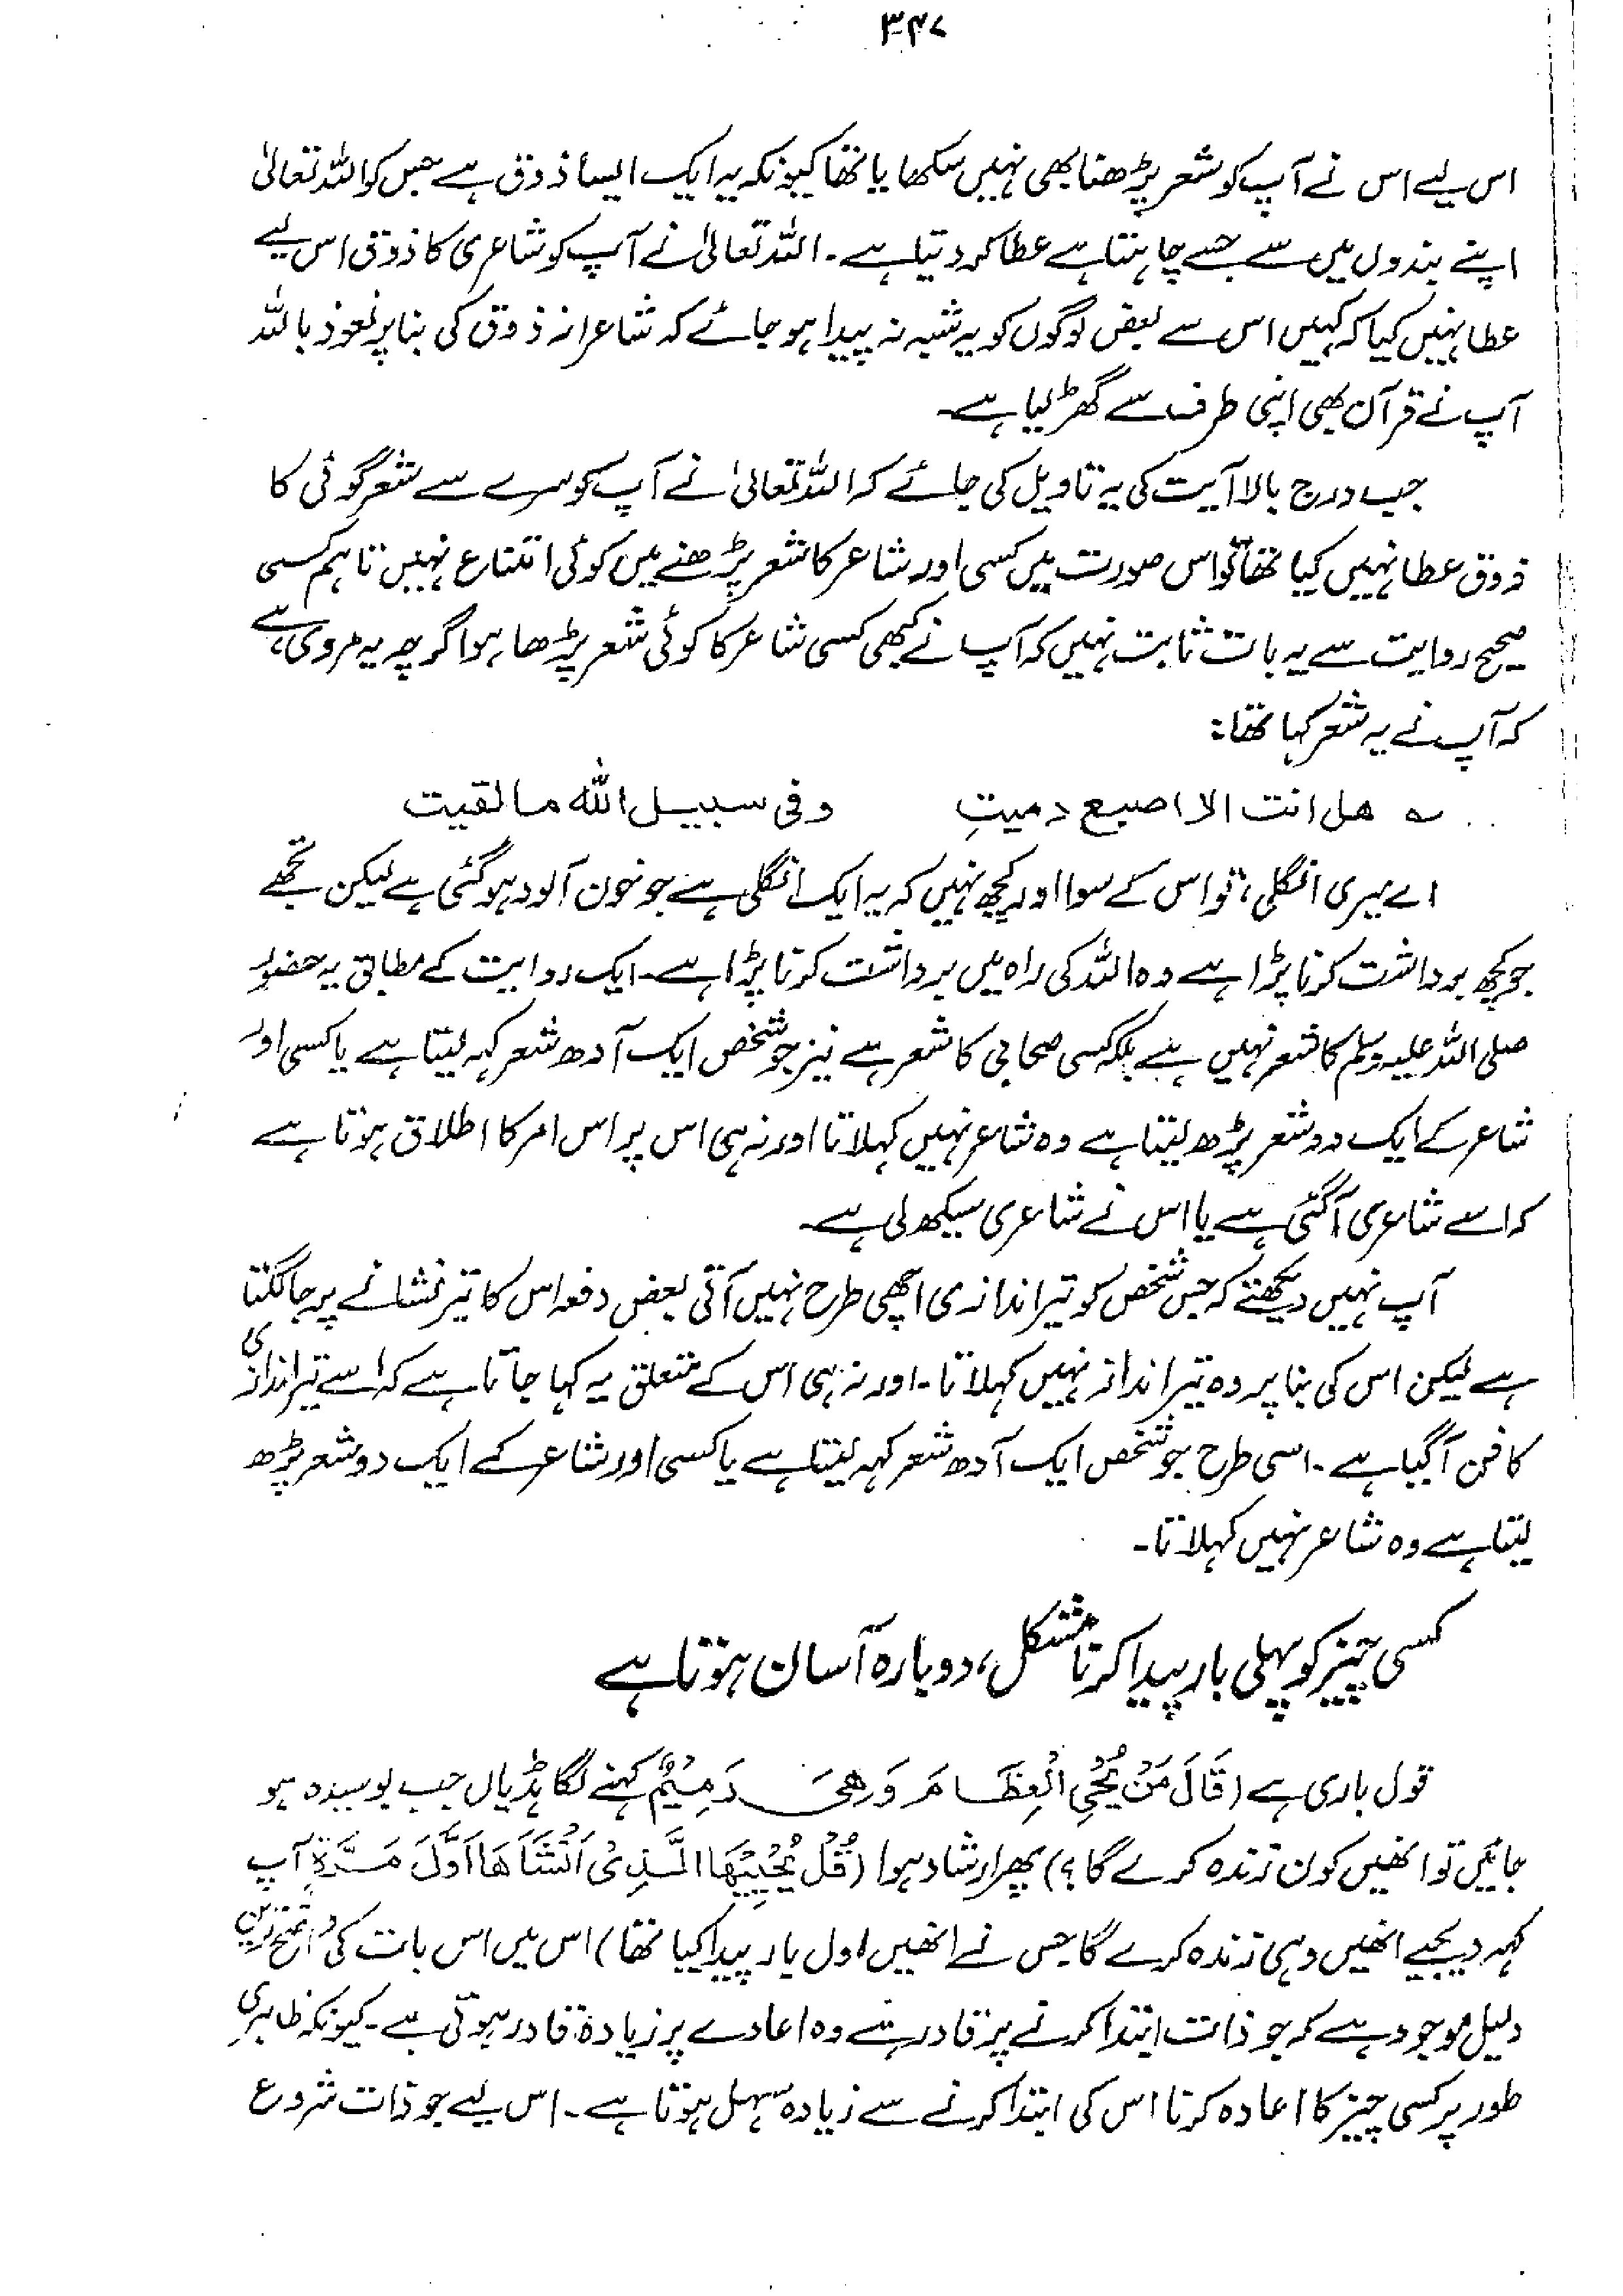 ۳۴۷
اس لیے اس نے آپ کو شعر پڑھنا بھی نہیں سکھایا تھا کیونکہ یہ ایک ایسا ذوق ہے جس کو اللہ تعالیٰ
اپنے بندوں میں سے جسے چاہتا ہے عطا کر دیتا ہے۔ اللہ تعالیٰ نے آپ کو شاعری کا ذوق اس لیے
عطا نہیں کیا کہ کہیں اس سے بعض لوگوں کو یہ شبہ نہ پیدا ہو جائے کہ شاعرانہ ذوق کی بنا پر نعوذ باللہ
آپ نے قرآن بھی اپنی طرف سے گھڑ لیا ہے۔
جب درج بالا آیت کی یہ تاویل کی جائے کہ اللہ تعالیٰ نے آپ کو سرے سے شعر گوئی کا
ذوق عطا نہیں کیا تھا تو اس صورت میں کسی اور شاعر کا شعر پڑھنے میں کوئی امتناع نہیں تاہم کسی
صحیح روایت سے یہ بات ثابت نہیں کہ آپ نے کبھی کسی شاعر کا کوئی شعر پڑھا ہو اگرچہ یہ مروی ہے
کہ آپ نے یہ شعر کہا تھا:
؎ هل انت الا اصبع دميتِ وفى سبيل الله ما لقيت
اے میری انگلی، تو اس کے سوا اور کچھ نہیں کہ یہ ایک انگلی ہے جو خون آلود ہو گئی ہے لیکن تجھے
جو کچھ برداشت کرنا پڑا ہے وہ اللہ کی راہ میں برداشت کرنا پڑا ہے۔ ایک روایت کے مطابق یہ حضور
صلی اللہ علیہ وسلم کا شعر نہیں ہے بلکہ کسی صحابی کا شعر ہے نیز جو شخص ایک آدھ شعر کہہ لیتا ہے یا کسی اور
شاعر کے ایک دو شعر پڑھ لیتا ہے وہ شاعر نہیں کہلاتا اور نہ ہی اس پر اس امر کا اطلاق ہوتا ہے
کہ اسے شاعری آ گئی ہے یا اس نے شاعری سیکھ لی ہے۔
آپ نہیں دیکھتے کہ جس شخص کو تیر اندازی اچھی طرح نہیں آتی بعض دفعہ اس کا تیر نشانے پر جا لگتا
ہے لیکن اس کی بنا پر وہ تیر انداز نہیں کہلاتا۔ اور نہ ہی اس کے متعلق یہ کہا جاتا ہے کہ اسے تیر اندازی
کا فن آ گیا ہے۔ اسی طرح جو شخص ایک آدھ شعر کہہ لیتا ہے یا کسی اور شاعر کے ایک دو شعر پڑھ
لیتا ہے وہ شاعر نہیں کہلاتا۔
کسی چیز کو پہلی بار پیدا کرنا مشکل، دوبارہ آسان ہوتا ہے
قول باری ہے (قَالَ مَنْ يُّحْيِ الْعِظَامَ وَهِيَ رَمِيْمٌ کہنے لگا ہڈیاں جب بوسیدہ ہو
جائیں تو انھیں کون زندہ کرے گا؟) پھر ارشاد ہوا (قُلْ يُحْيِيْهَا الَّذِيْ اَنْشَاَهَا اَوَّلَ مَرَّةٍ آپ
کہہ دیجیے انھیں وہی زندہ کرے گا جس نے انھیں اول بار پیدا کیا تھا) اس میں اس بات کی واضح ترین
دلیل موجود ہے کہ جو ذات ابتدا کرنے پر قادر ہے وہ اعادے پر زیادہ قادر ہوتی ہے۔ کیونکہ ظاہری
طور پر کسی چیز کا اعادہ کرنا اس کی ابتدا کرنے سے زیادہ سہل ہوتا ہے۔ اس لیے جو ذات شروع